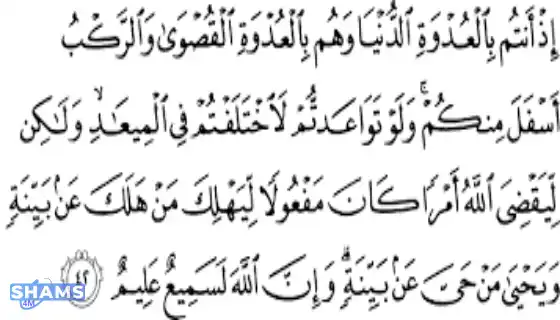 إِذْ أَنتُم بِالْعُدْوَةِ الدُّنْيَا وَهُم بِالْعُدْوَةِ الْقُصْوَىٰ وَالرَّكْبُ
أَسْفَلَ مِنكُمْ ۚ وَلَوْ تَوَاعَدتُّمْ لَاخْتَلَفْتُمْ فِي الْمِيعَادِ ۙ وَلَٰكِن
لِّيَقْضِيَ اللَّهُ أَمْرًا كَانَ مَفْعُولًا لِّيَهْلِكَ مَنْ هَلَكَ عَن بَيِّنَةٍ
وَيَحْيَىٰ مَنْ حَيَّ عَن بَيِّنَةٍ ۗ وَإِنَّ اللَّهَ لَسَمِيعٌ عَلِيمٌ ٤٢
SHAMS
4M